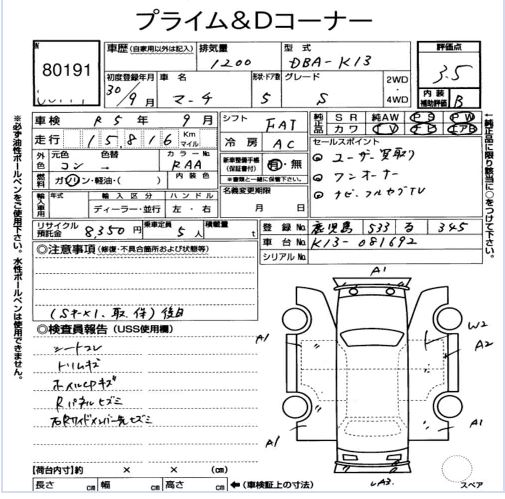 プライム&Dコーナー
80191
車歴 (自家用以外は記入) 排気量 1200 型式 DBA-K13 評価点 3.5
初度登録年月 30/9月 車名 マーチ 形状・ドア数 5 グレード S 2WD・4WD 内装補助評価 B
車検 R5年 9月 シフト FAT 純正品 SR 純AW PS PW カワ TV ナビ エアB
走行 15,816 Km マイル 冷房 AC セールスポイント
外色 元色 コン 色替 → カラーNo. RAA 新車整備手帳(保証書付) 有・無 ※書類と一緒に保管下さい。 ユーザー買取り
燃料 ガソリン・軽油・( ) 内装色 ワンオーナー
輸入車用 年式 輸入区分 ディーラー・並行 ハンドル 左・右 名義変更期限 月 日 ナビ、フルセグTV
リサイクル預託金 8350円 乗車定員 5人 積載量 t 登録 鹿児島 533 る 345
車台No. K13-081692
シリアルNo.
◎注意事項 (修復・不具合箇所および状態等)
(スナメ1、取、保) 後日
◎検査員報告 (USS使用欄)
シートコレ
トリムキズ
ホイルCPキズ
Rパネルヒズミ
右Rサイドメンバー先ヒズミ
A1
A1
W2
A2
A1
A1
A3
スペア
【荷台内寸】 約 × × (cm)
長さ cm 幅 cm 高さ cm ←(車検証上の寸法)
※必ず油性ボールペンをご使用下さい。水性ボールペンは使用できません。
←純正品に限り該当に○をつけて下さい。